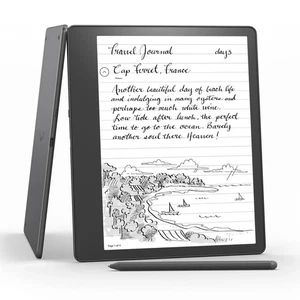 Travel Journal days
Cap Ferret, France
Another beautiful day of beach life
and indulging in many oysters and
perhaps too much white wine.
Low tide after lunch, the perfect
time to go to the ocean. Barely
another soul there. Heaven!
Page 1 of 6